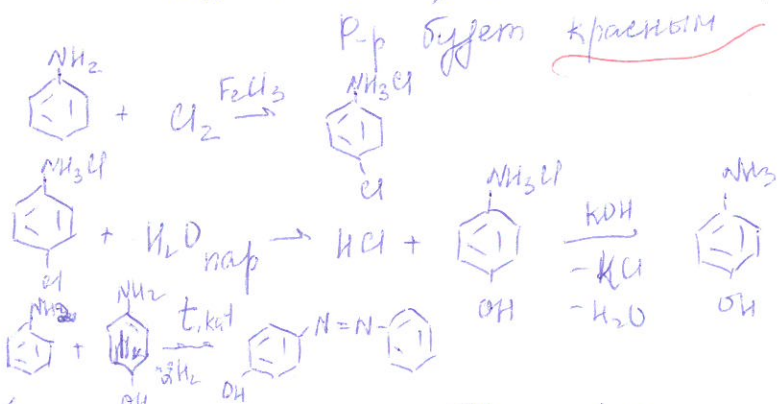 Р-р будет красным
NH₂ + Cl₂ FeCl₃ → NH₃Cl Cl
NH₃Cl Cl + H₂O пар → HCl + NH₃Cl OH KOH -KCl -H₂O NH₃ OH
NH₂ + NH₂ OH t, kat -2H₂ OH N=N